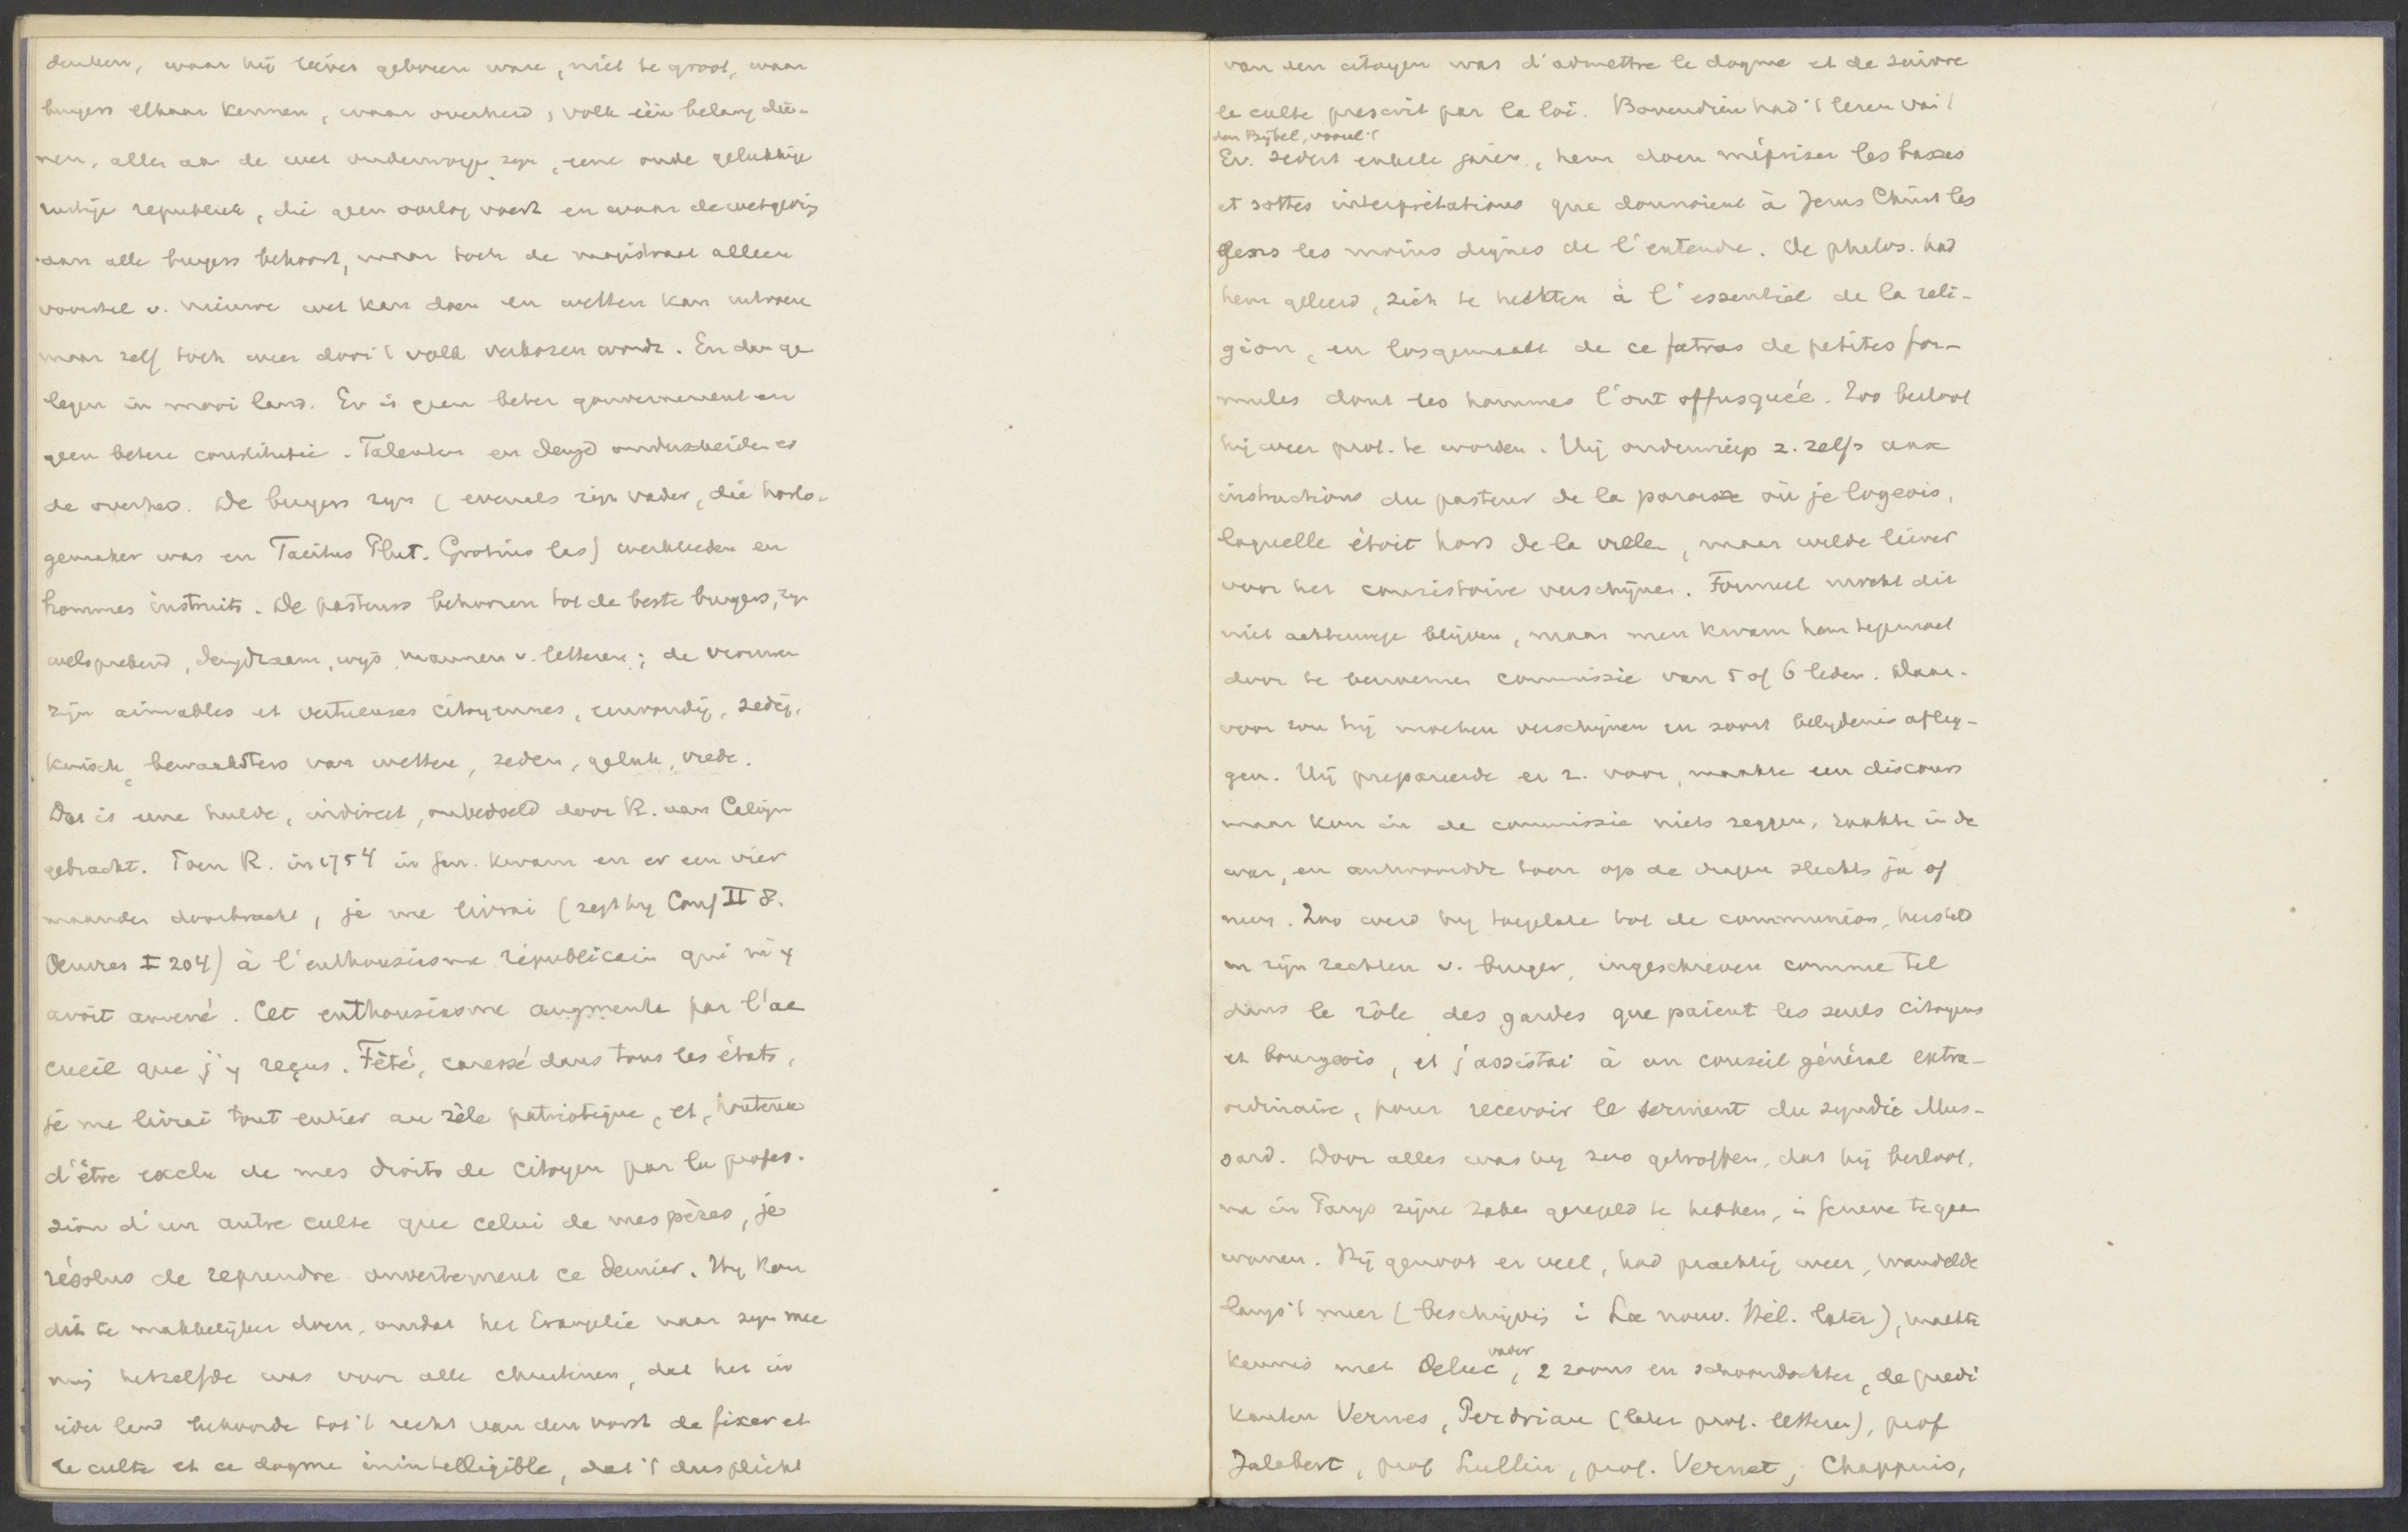 denken, waar hij liever geboren ware, niet te groot, waar
burgers elkaar kennen, waar overheid, volk één belang die-
nen, allen aan de wet onderworpen zijn, eene oude gelukkige
rustige republiek, die geen oorlog voert en waar de wetgeving
aan alle burgers behoort, maar toch de magistraat alleen
voorstel v. nieuwe wet kan doen en wetten kan
maar zelf toch weer door 't volk verkozen wordt. En dan ge
legen in mooi land. Er is geen beter gouvernement en
geen betere constitutie. Talenten en deugd onderscheiden er
de overheid. De burgers zijn (evenals zijn vader, die horlo-
gemaker was en Tacitus Plut. Grotius las) werklieden en
hommes instruits. De pasteurs behooren tot de beste burgers, zijn
welsprekend, deugdzaam, wijs, mannen v. letteren; de vrouwen
zijn aimables et vertueuses citoyennes, eenvoudig, zedig,
kuisch, bewaaksters van wetten, zeden, geluk, vrede.
Dat is eene hulde, indirect, onbedoeld door R. aan Calvijn
gebracht. Toen R. in 1754 in Gen. kwam en er een vier
maanden doorbracht, je me livrai (zegt hij Conf II 8.
Oeuvres I 204) à l'enthousiasme républicain qui m'y
avoit amené. Cet enthousiasme augmenta par l'ac
cueil que j'y reçus. Fêté, caressé dans tous les états,
je me livrai tout entier au zèle patriotique, et, honteux
d'être exclu de mes droits de citoyen par la profes-
sion d'un autre culte que celui de mes pères, je
résolus de reprendre ouvertement ce dernier. Hij kon
dit te makkelijker doen, omdat het Evangelie naar zijn mee
ning hetzelfde was voor alle christenen, dat het in
ieder land behoorde tot 't recht van den vorst de fixer et
le culte et ce dogme inintelligible, dat 't dus plicht
van den citoyen was d'admettre le dogme et de suivre
le culte prescrit par la loi. Bovendien had 't lezen van
den Bijbel, vooral 't
Ev. sedert enkele jaren, hem doen mépriser les basses
et sottes interprétations que donnoient à Jesus Christ les
gens les moins dignes de l'entendre. De philos. had
hem geleerd, zich te hechten à l'essentiel de la reli-
gion, en losgemaakt de ce fatras de petites for-
mules dont les hommes l'ont offusquée. Zoo besloot
hij weer prot. te worden. Hij onderwierp z. zelfs aux
instructions du pasteur de la paroisse où je logeois,
laquelle étoit hors de la ville, maar wilde liever
voor het consistoire verschijnen. Formeel mocht dit
niet achterwege blijven, maar men kwam hem tegemoet
door te benoemen commissie van 5 of 6 leden. Daar-
voor zou hij moeten verschijnen en soort belydenis afleg-
gen. Hij prepareerde er z. voor, maakte een discours
maar kon in de commissie niets zeggen, raakte in de
war, en antwoordde toen op de vragen slechts ja of
neen. Zoo werd hij toegelaten tot de communion, hersteld
in zijn rechten v. burger, ingeschreven comme tel
dans le rôle des gardes que paient les seuls citoyens
et bourgeois, et j'assistai à un conseil général extra-
ordinaire, pour recevoir le serment du syndic Mus-
sard. Door alles was hij zoo getroffen, dat hij besloot,
na in Parijs zijne zaken geregeld te hebben, i Geneve te gaan
wonen. Hij genoot er veel, had prachtig weer, wandelde
langs 't meer (beschrijving i La nouv. Hél. later), maakte
vader
kennis met Deluc, 2 zoons en schoondochter, de predi
kanten Vernes, Perdriau (later prof. letteren), prof
Jalabert, prof Lullin, prof. Vernet, Chappuis,